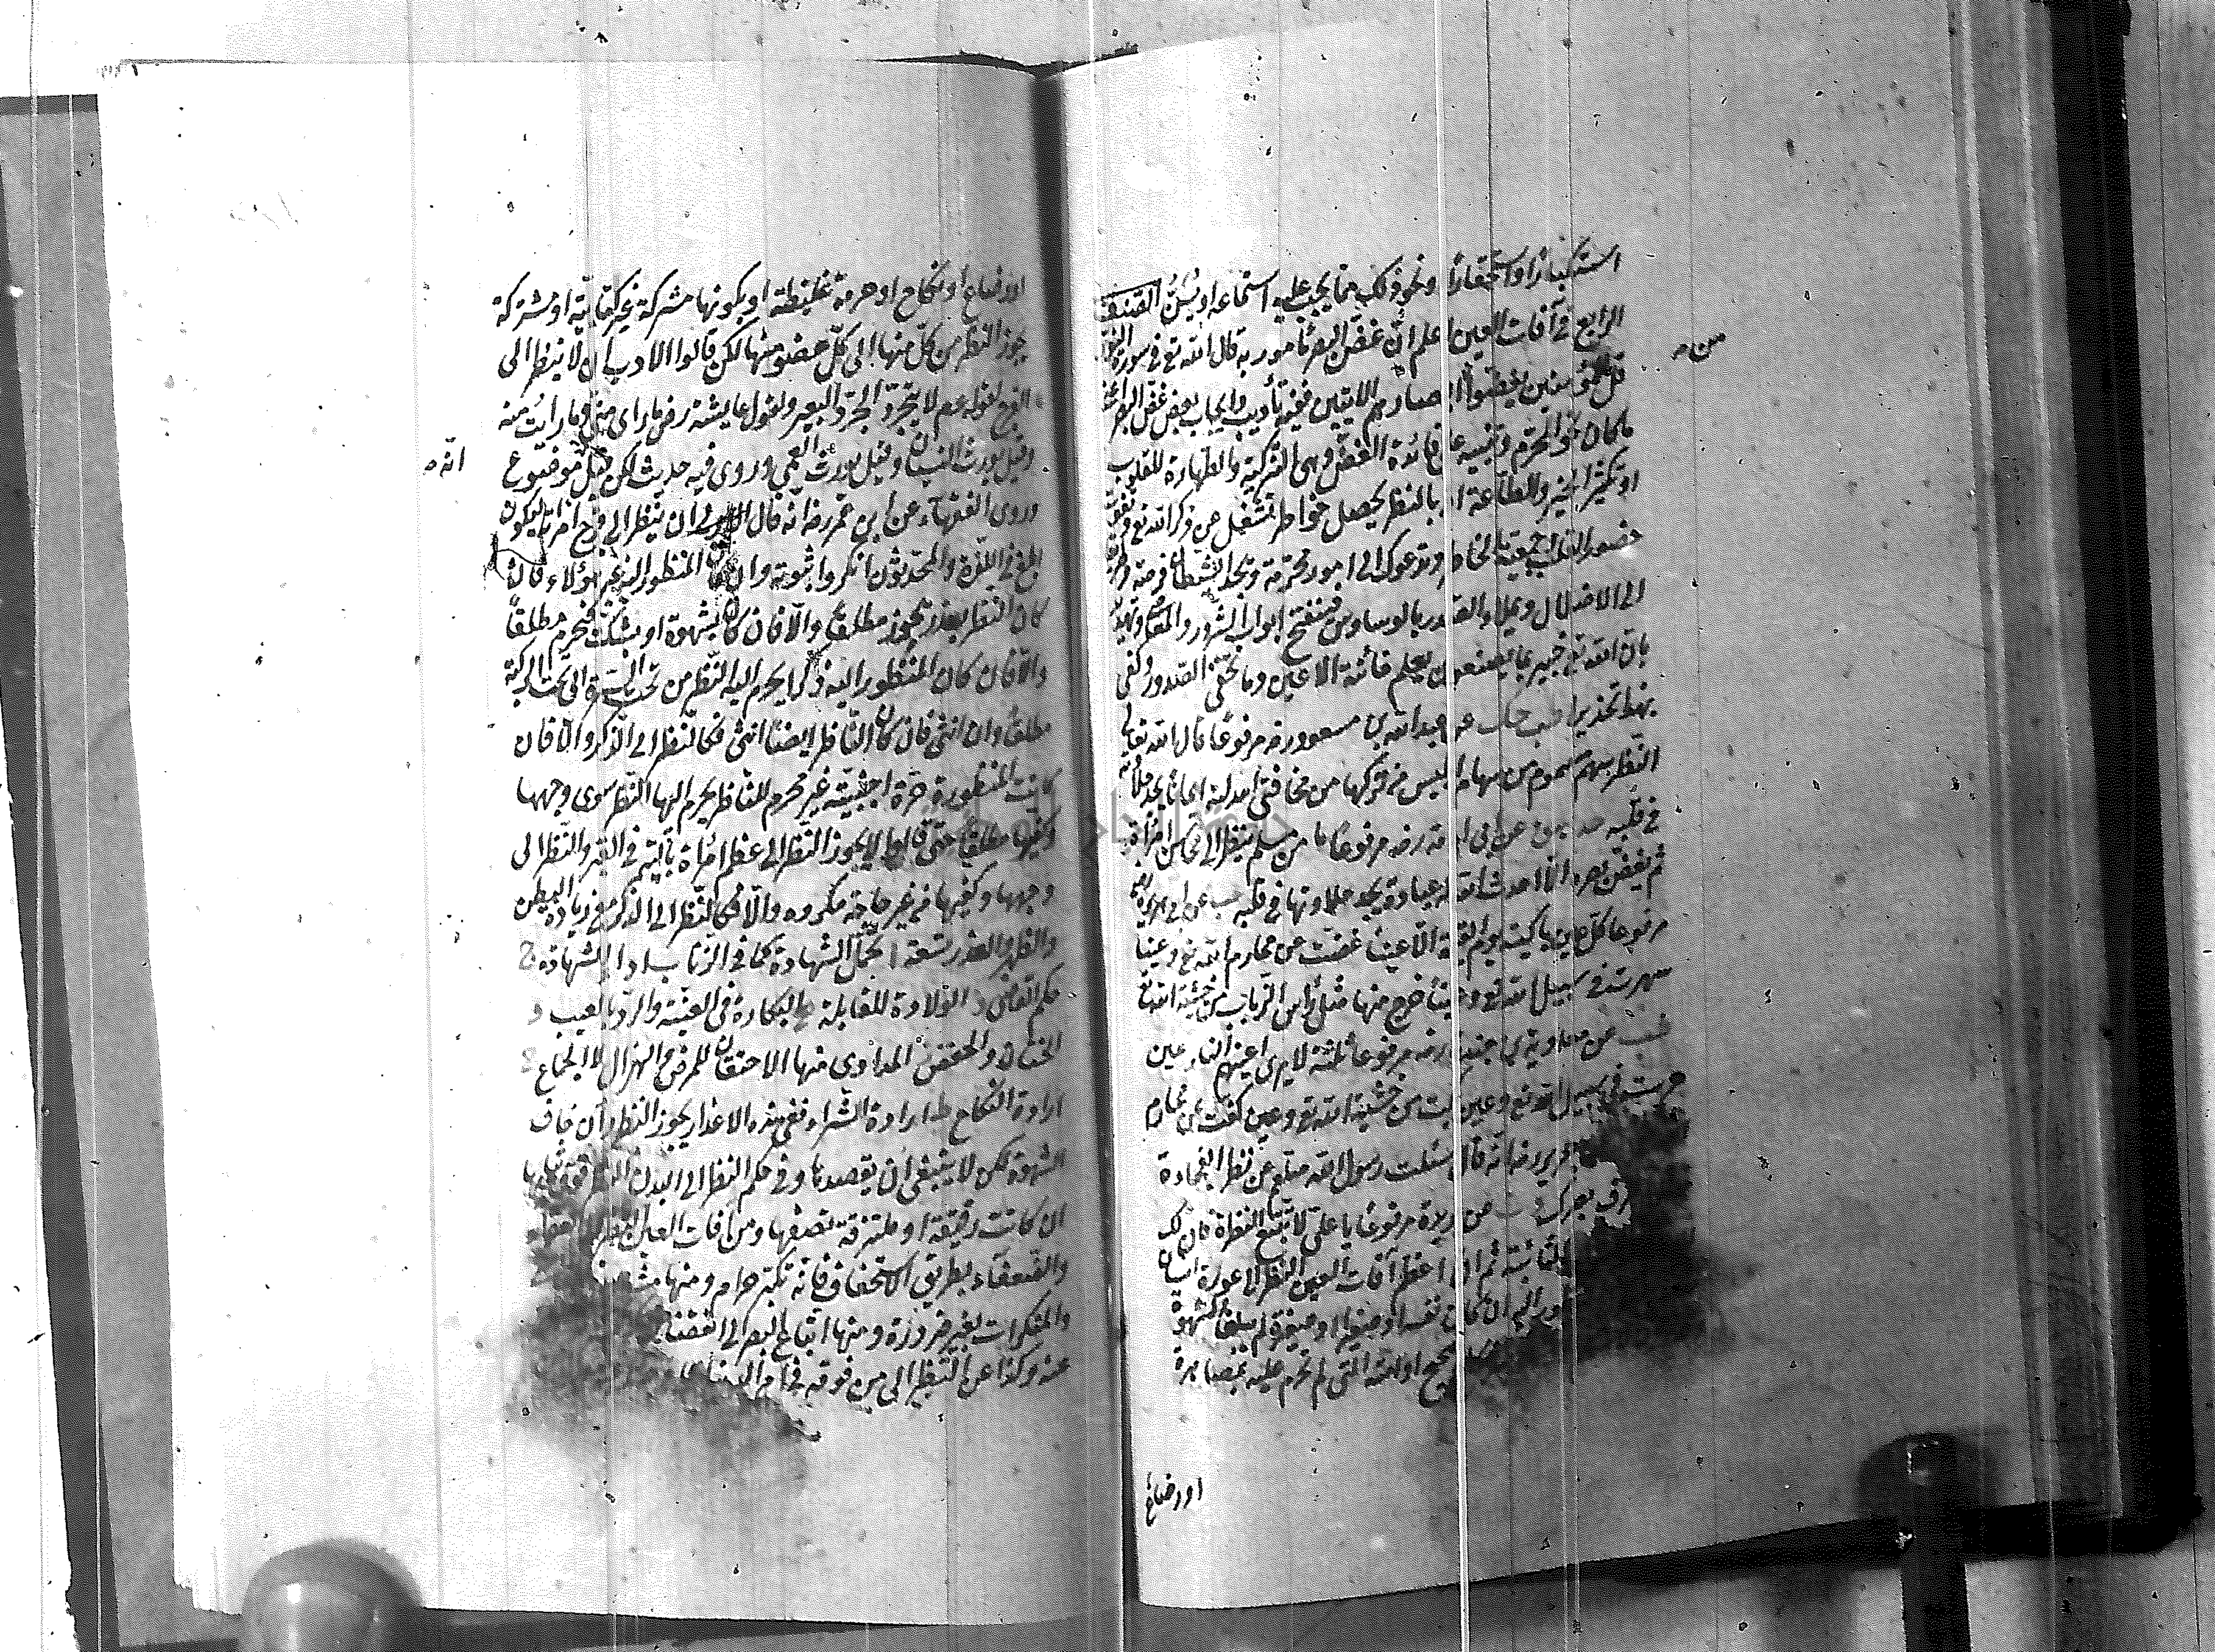 استكبارا واستحقارا ونحو ذلك مما يجب عليه استماعه او يسن الصنف
الرابع في آفات العين اعلم ان غض البصر مأمور به قال الله تع في سورة النور
قل للمؤمنين يغضوا ابصارهم الايتين ففيه تأديب وايجاب بعض غض البصر
ما كان نحو المحرم وتنبيه على فائدة الغض وهي التزكية والطهارة للقلوب
او تكثير الخير والطاعة اذ بالنظر يحصل خواطر تشغل عن ذكر الله تع
حضور القلب جمعية الخاطر وتدعوك الى امور محرمة ويجد الشيطان فرصة
الى الاضلال ويملأ الصدر بالوساوس فينفتح ابواب الشرور والمعاصي وتهديد
بان الله تع خبير بما يصنعون يعلم خائنة الاعين وما تخفي الصدور وكفى
بهذا تحذيرا طب حك عن عبد الله بن مسعود رضه مرفوعا قال الله تعالى
النظر سهم مسموم من سهام ابليس من تركها من مخافتي ابدلته ايمانا يجد حلاوته
في قلبه حد عن ابي امامة رضه مرفوعا ما من مسلم ينظر الى محاسن امرأة
ثم يغض بصره الا احدث الله له عبادة يجد حلاوتها في قلبه عن ابي هريرة
مرفوعا كل عين باكية يوم القيمة الا عينا غضت عن محارم الله تع وعينا
سهرت في سبيل الله تع وعينا خرج منها مثل رأس الذباب من خشية الله تع
طب عن معاوية بن رضه مرفوعا ثلثة لا يرى اعينهم النار عين
حرست في سبيل الله تع وعين بكت من خشية الله تع وعين كفت عن محارم
جرير رضه انه قال سئلت رسول الله صلعم عن نظر الفجاءة
بصرك عن بريدة مرفوعا يا علي لا تتبع النظرة فان لك
ثم ان اعظم آفات العين النظر الى عورة انسان
او صغيرا او صغيرة لم يبلغا الشهوة
او امته التي لم تحرم عليه بمصاهرة
او رضاع
او رضاع او نكاح او حرمة غليظة او بكونها مشركة غير كتابية او مشتركة
جوز النظر من كل منهما الى كل عضو منها لكن قالوا الادب ان لا ينظر الى
الفرج لقوله عم لا يتجرد تجرد البعير ولقول عايشة رض ما راى مني وما رايت منه
وقيل يورث النسيان وقيل يورث العمى وروى فيه حديث لكن قيل موضوع
انه
وروى الفقهاء عن ابن عمر رضه انه قال الاولى ان ينظر الى فرج امرأته ليكون
ابلغ في اللذة والمحدثون انكروا ثبوته وان كان المنظور اليه غير هؤلاء فان
كان النظر بعذر يجوز مطلقا والا فان كان بشهوة او بشك فيحرم مطلقا
والا فان كان المنظور اليه ذكرا يحرم اليه النظر من تحت السرة الى تحت الركبة
مطلقا وان انثى فان كان الناظر ايضا انثى فكالنظر الى الذكر والا فان
كانت المنظورة حرة اجنبية غير محرم للناظر يحرم اليها النظر سوى وجهها
وكفيها مطلقا حتى قالوا لا يجوز النظر الى عظم امرأة بالية في القبر والنظر الى
وجهها وكفيها من غير حاجة مكروه والا فكالنظر الى الذكر مع زيادة البطن
والظهر والعذر تسعة تحمل الشهادة كما في الزنا ب اداء الشهادة ج
حكم القاضي د الولادة للقابلة ه البكارة في العنة والرد بالعيب و
الختان والخفض ز المداوى منها الاحتقان للمرض والهزال لا الجماع ح
ارادة النكاح ط ارادة الشراء ففي هذه الاعذار يجوز النظر وان خاف
الشهوة لكن لا ينبغي ان يقصدها وفي حكم النظر الى البدن النظر فوق ثيابها
ان كانت رقيقة او ملتزقة تصفها ومن آفات العين النظر الى الفقراء
والضعفاء بطريق الاستخفاف فانه تكبر حرام ومنها مشاهدة
والمنكرات بغير ضرورة ومنها اتباع البصر الى
عنه وكذا عن النظر الى من فوقه في امر الدنيا